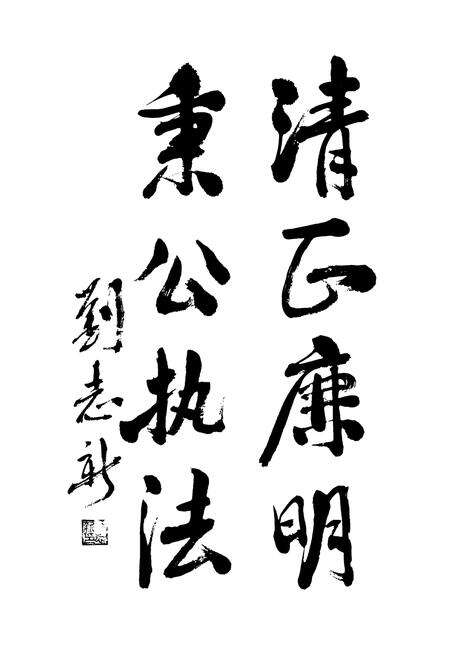 清正廉明
秉公执法
劉志新